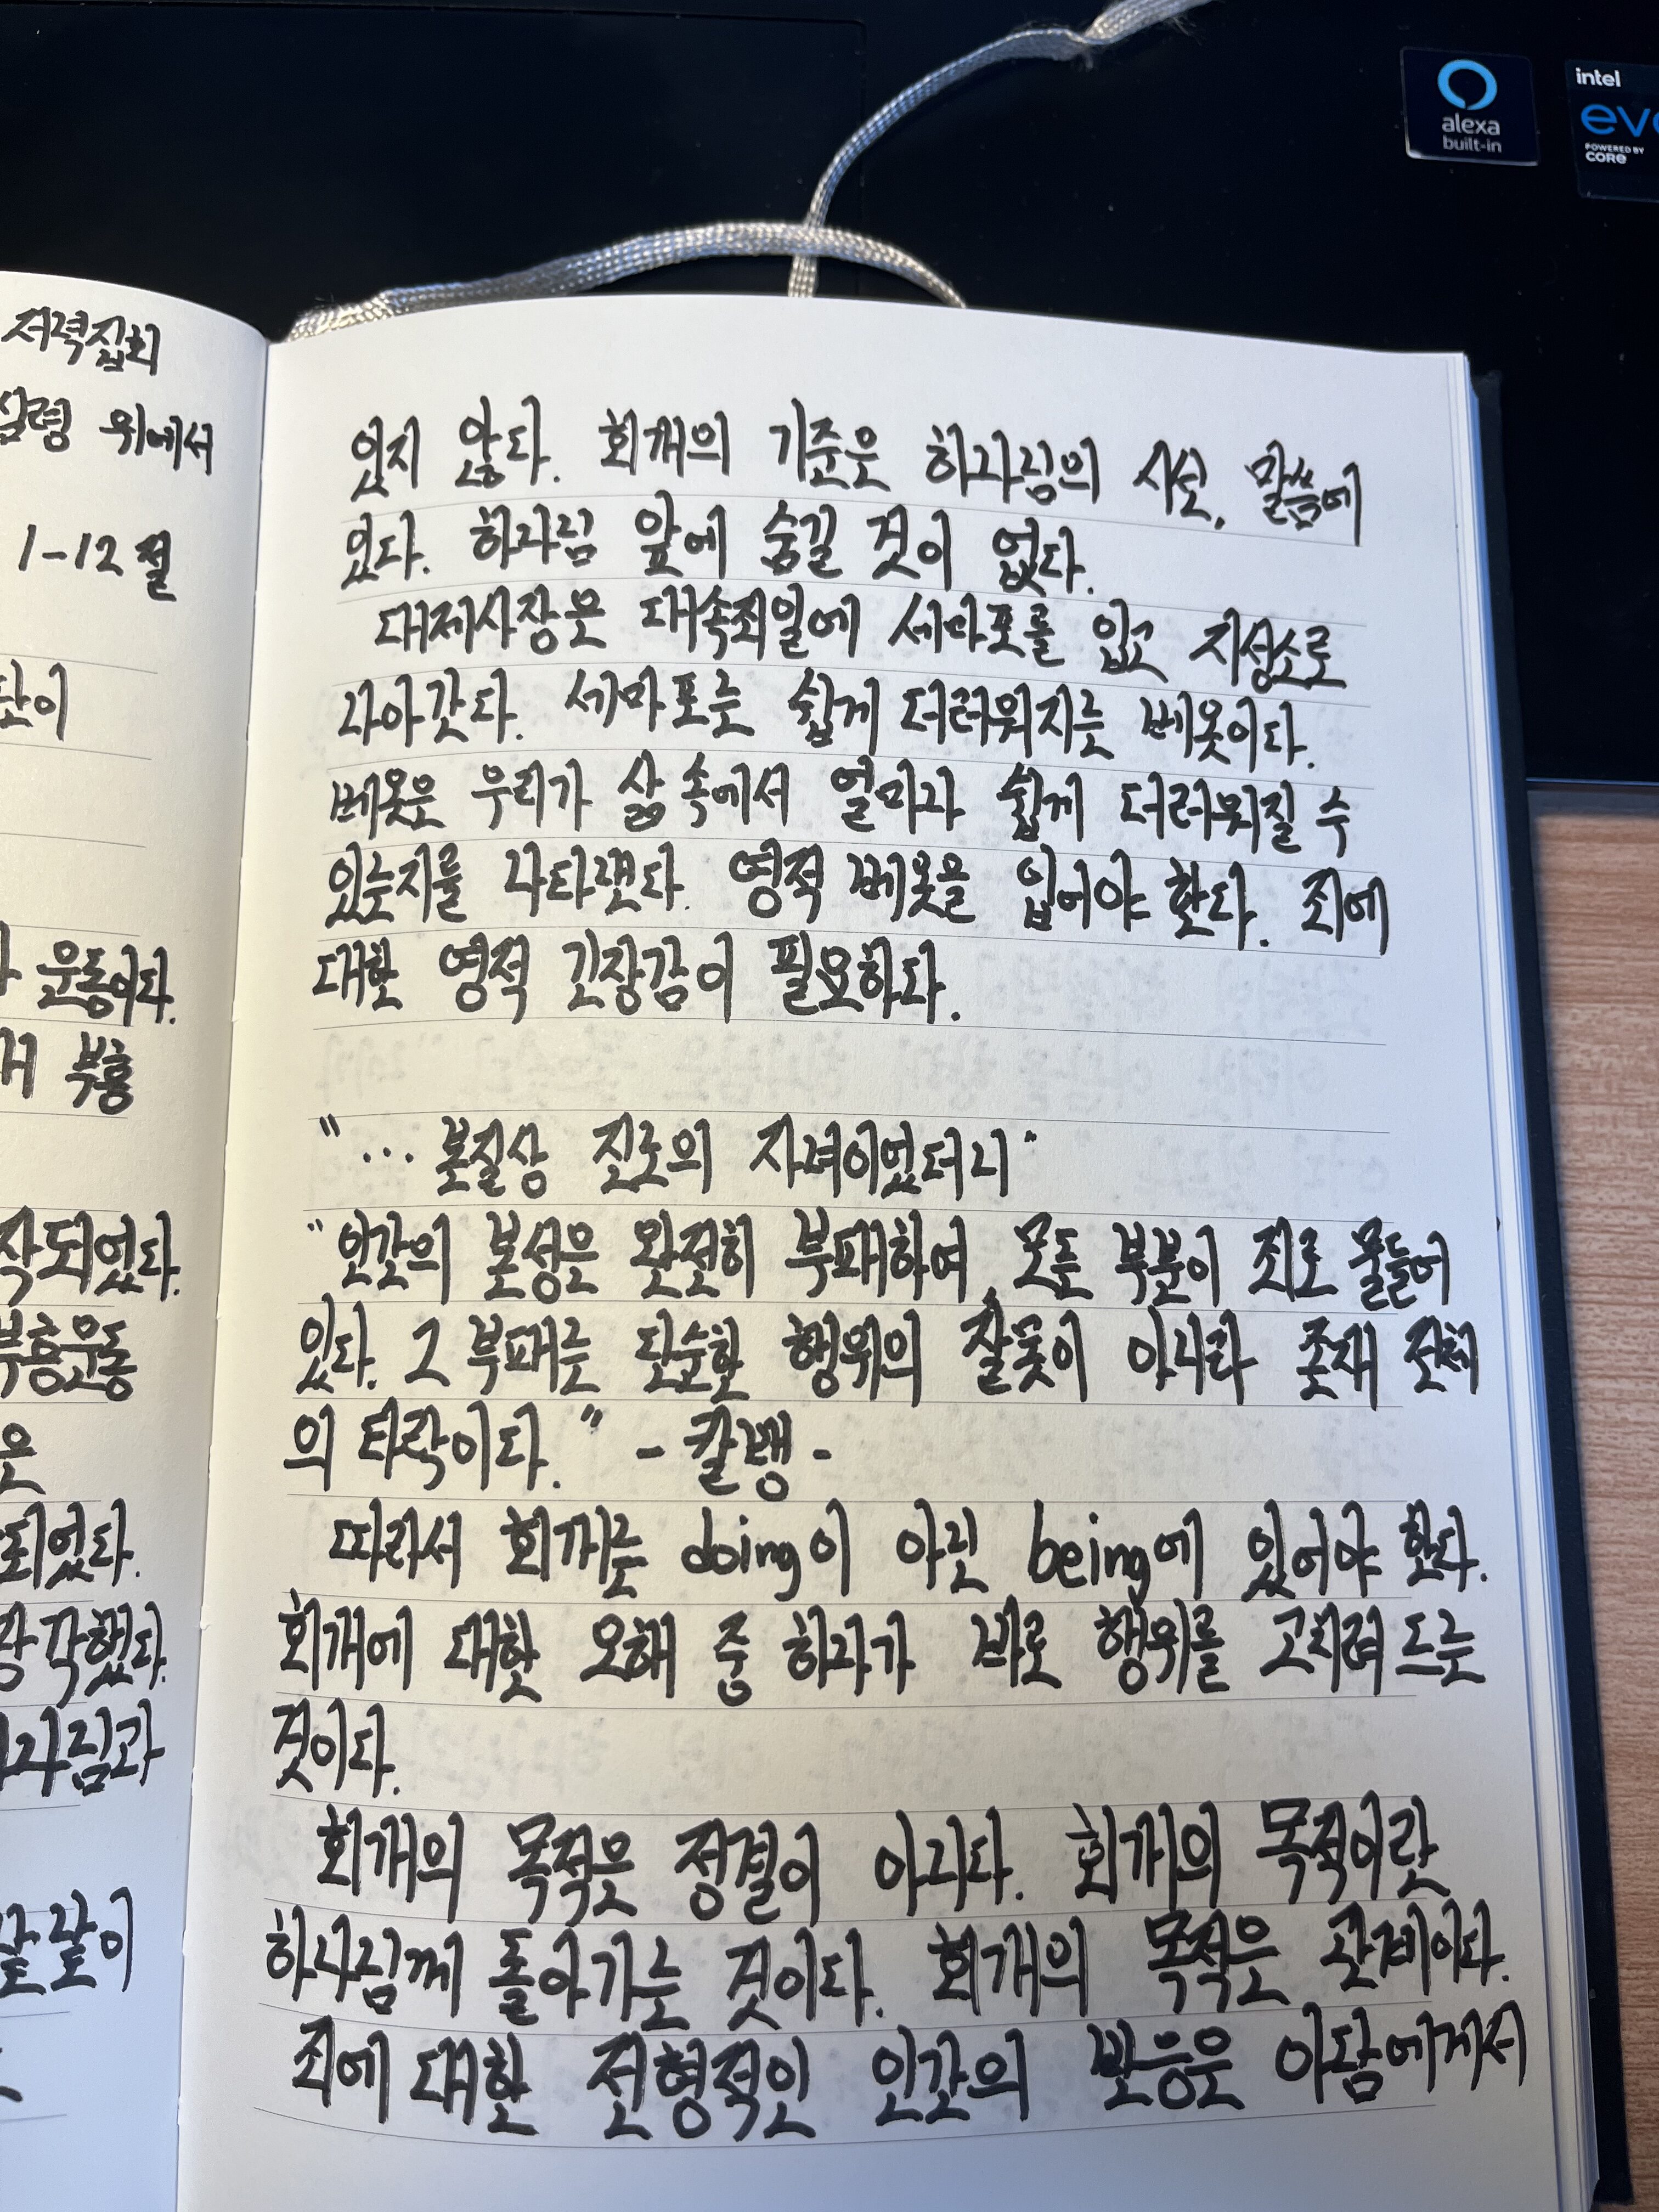 저력집회
심령 위에서
1-12절
단이
운동이다.
거 부흥
작되었다.
부흥운동
은
되었다.
각했다.
나님과
같이
alexa
built-in
intel
evo
POWERED BY
CORE
있지 않다. 회개의 기준은 하나님의 시선, 말씀에
있다. 하나님 앞에 숨길 것이 없다.
대제사장은 대속죄일에 세마포를 입고 지성소로
나아간다. 세마포는 쉽게 더러워지는 베옷이다.
베옷은 우리가 삶 속에서 얼마나 쉽게 더러워질 수
있는지를 나타낸다. 영적 베옷을 입어야 한다. 죄에
대한 영적 긴장감이 필요하다.
"... 본질상 진로의 자녀이었더니"
"인간의 본성은 완전히 부패하여, 모든 부분이 죄로 물들어
있다. 그 부패는 단순한 행위의 잘못이 아니라 존재 전체
의 타락이다." - 칼뱅 -
따라서 회개는 doing이 아닌 being에 있어야 한다.
회개에 대한 오해 중 하나가 바로 행위를 고치려 드는
것이다.
회개의 목적은 정결이 아니다. 회개의 목적이란
하나님께 돌아가는 것이다. 회개의 목적은 관계이다.
죄에 대한 전형적인 인간의 반응은 아담에게서